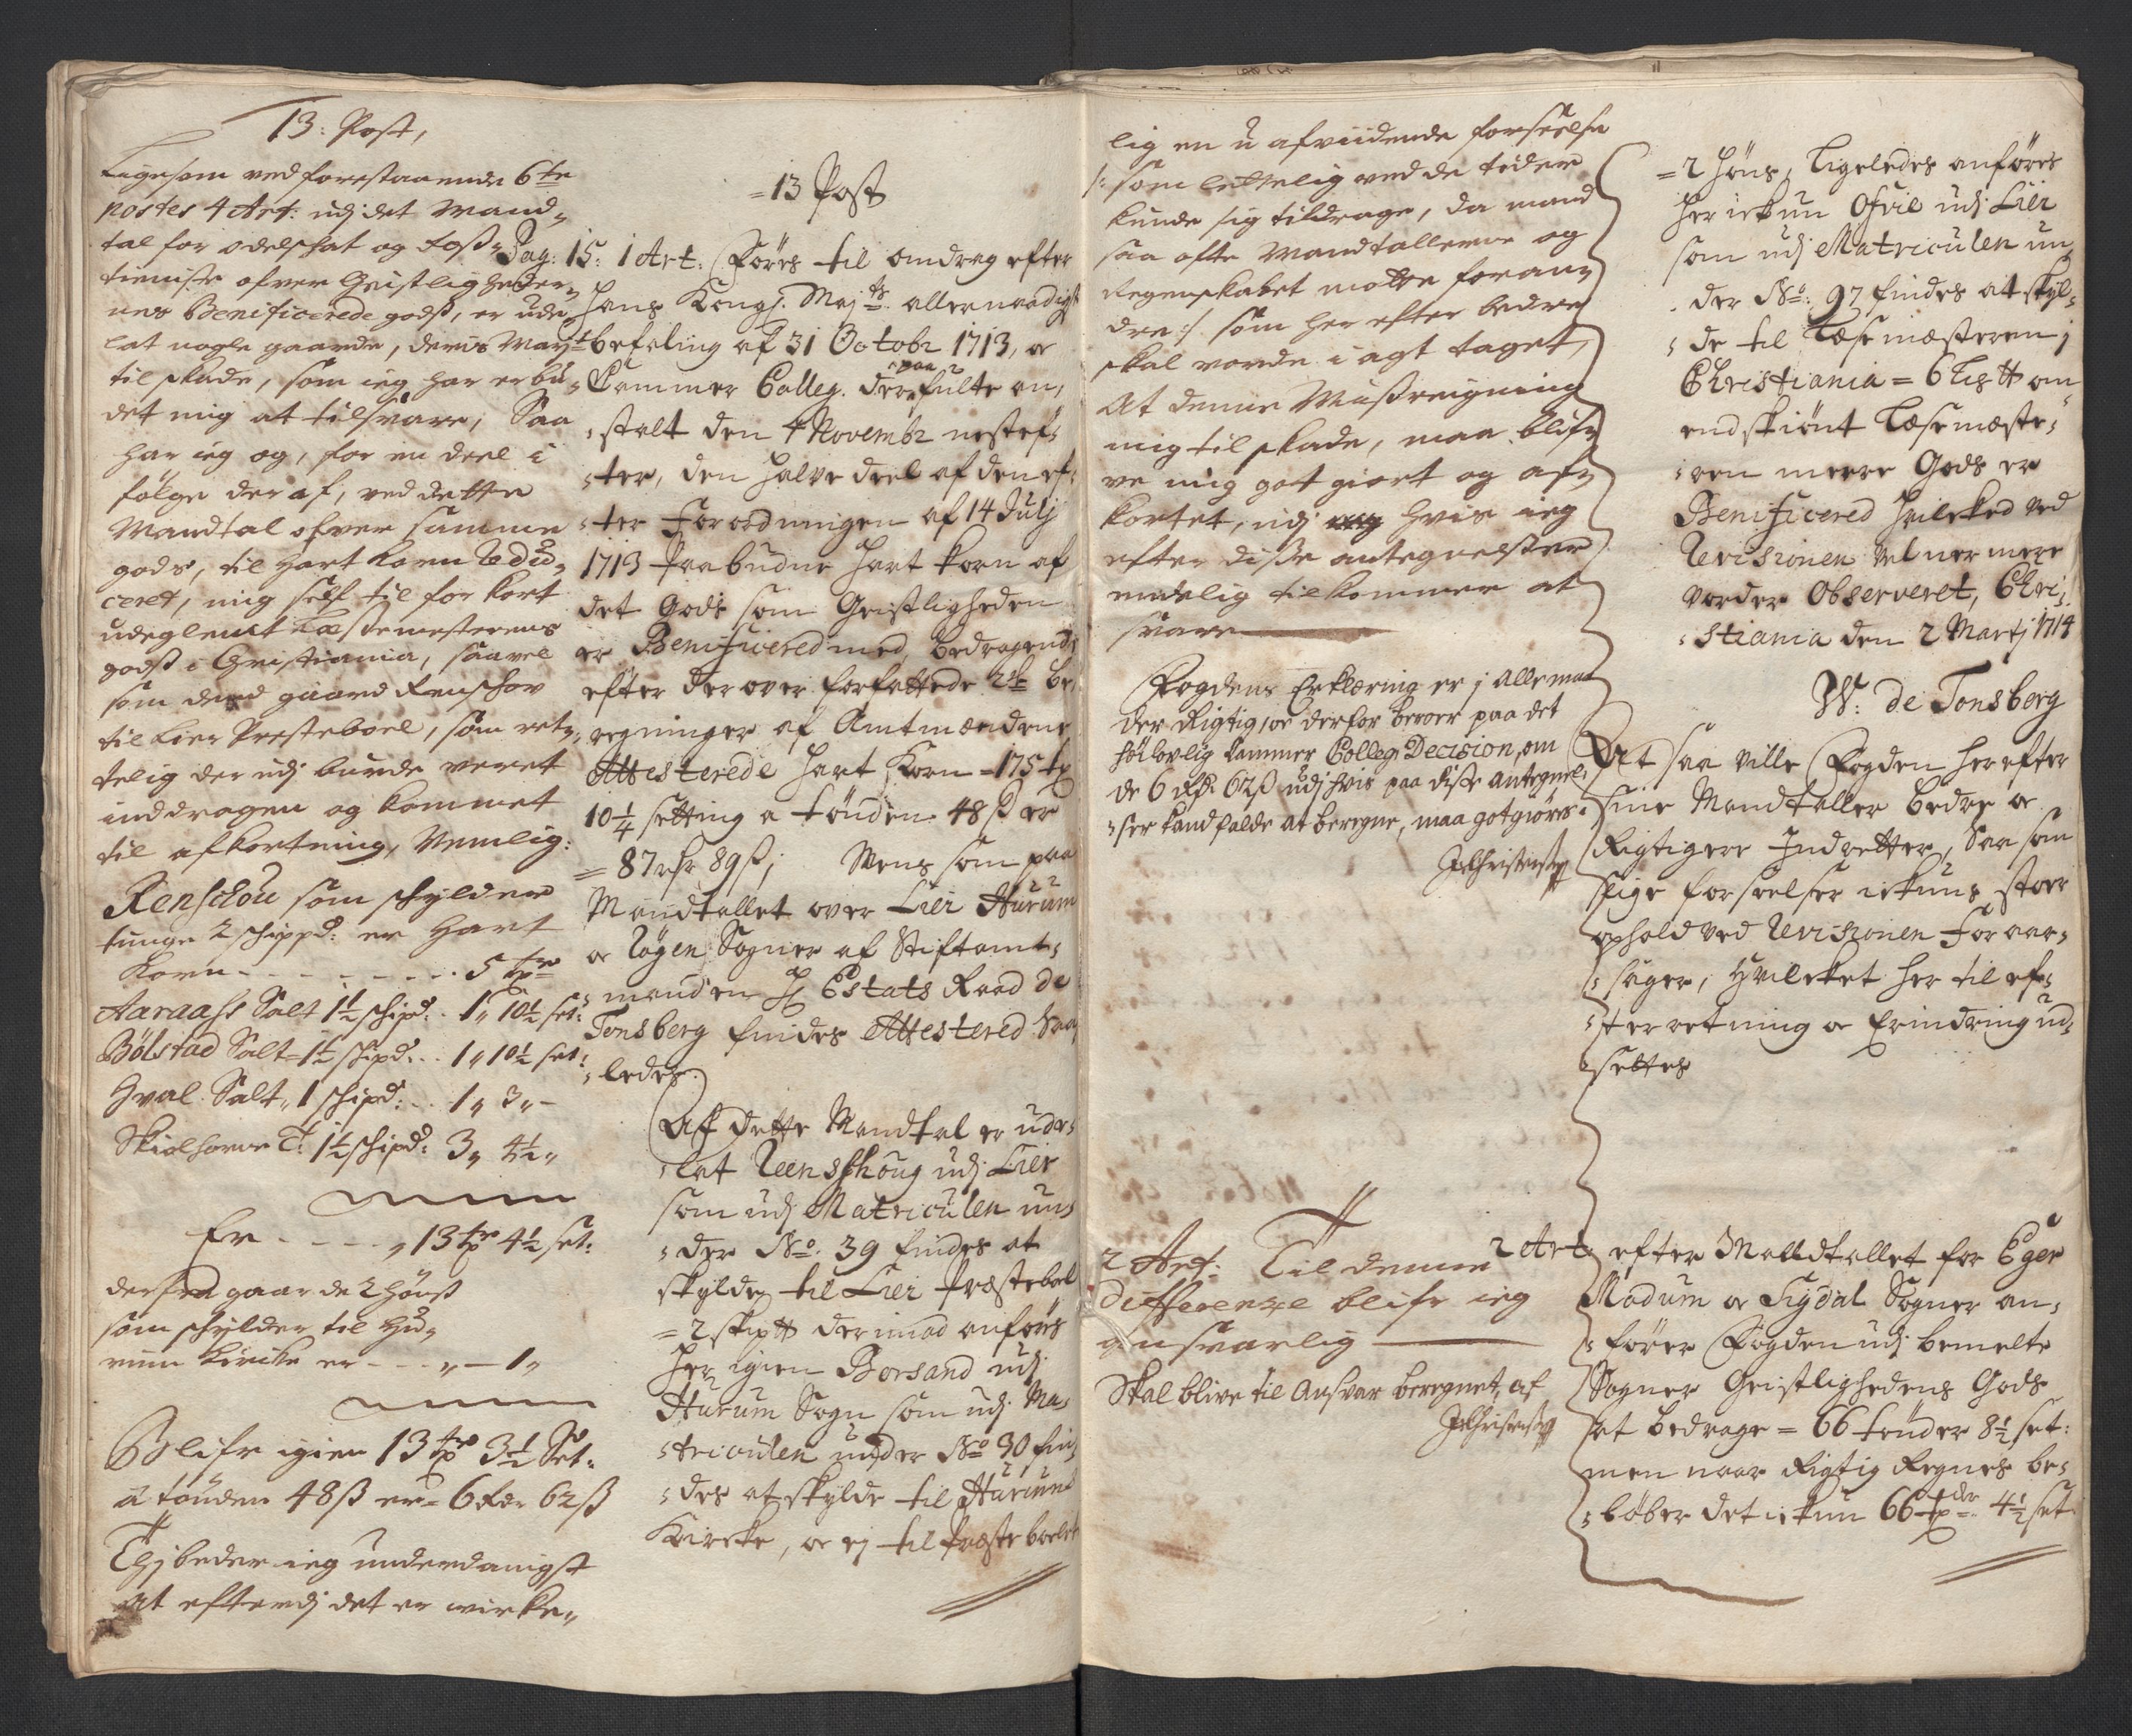 13: Post,
Ligesom ved forrestaaende 6te
postes 4 Art: udj det Mand-
tal for odelschat og Foss-
tieniste ofver Geistligheder-
nes Benificerede godtz, er ude-
lat nogle gaarde, deris May:t
til skade, som ieg har erbu-
det mig at tilsvare, Saa
har ieg og, for en deel i
følge deraf, ved dette
Mandtal ofver samme
gods, til Hart Korn Redu-
ceret, mig self til for kort
udeglemt Læssemesterens
godtz i Christiania, saavel
som den gaard Renschov
til Lier Presteboel, som ret-
telig der udj burde veret
inddragen og kommet
til afkortning, Nemlig:
Renschou som schylder
tunge 2 schippd: er Hart
Korn - - - - - - - - 5 tdr
Aaraahs Salt 1½ schipd: . 1„ 10½ set:
Bölstad Salt = 1½ schipd: . . 1„ 10½ set:
Hval Salt„ 1 schipd: . . 1„ 3„ –
Skiolhorne T: 1½ schipd: 3„ 4½„
Er - - - - „ 13 tdr 4½ set:
derfra gaar de 2 höns
som schylder til Hu-
rum Kircke er - - - „ – 1„
Blifr igien 13 tdr 3½ Set:
â tönden 48 ß er = 6 Rdr 62 ß
Thj beder ieg underdanigst
at efterdj det er wircke-
= 13 Post
Pag: 15: 1 Art: Föres til omdrag efter
Hans Kongl. Maj:ts allernaadigst
befaling af 31 Octobr 1713, oc
Cammer Colleg. derpaa fulte an-
stalt den 4 Novembr nestef-
ter, den halve deel af den ef-
ter Forordningen af 14 Julj
1713 Paabudne Hart Korn af
det Gods som Geistligheden
er Benificered med, bedragende
efter der over forfattede 2de be-
regninger af Amtmændene
Attesterede Hart Korn = 175 tr
10¼ setting a tönden 48 ß er
= 87 rdr 89 ß; Mens som paa
Mandtallet over Lier Hurum
oc Rögen Sogner af Stiftamt-
manden Hr Estats Raad de
Tonsberg findes Attestered Saa-
ledes.
Af dette Mandtal er ude-
lat Reenskhoug udj Lier
som udj Matriculen un-
der No. 39 findes at
skylde til Lier Præstebol
= 2 skip℔ derimod anföres
her igien Borsand udj
Hurum Sogn som udj Ma-
triculen under No 30 fin-
des at skylde til Hurums
Kircke, oc ej til Præsteboelet
lig en u afviidende forseelse
/: som lettelig ved de tider
kunde sig tildrage, da mand
saa ofte Mandtallerne og
Regenskabet motte foran-
dre :/ som her efter bedre
skal vorde i agt taget,
At denne Missreigning
mig til skade, maa blif-
ve mig got giort og af-
kortet, udj hvis ieg
efter disse antegnelser
endelig tilkommer at
svare
Fogdens Erklæring er j alle maa-
der Rigtig, oc derfor beroer paa det
höilovlig Cammer Collegj Decision, om
de 6 Rdr 62 ß udj hvis paa disse antegnel-
ser kand falde at beregne, maa gotgiöres.
2 Art: Til denne
Differenze blifr ieg
ansvarlig
Skal blive til Ansvar beregnet, af
= 2 höns, Ligeledes anföres
her ickun Ofvie udj Lier
som udj Matriculen un-
der No: 97 findes at skyl-
de til Læsemæsteren j
Christiania = 6 Lis ℔ om-
endskiönt Læsemæste-
ren meere Gods er
Benificered hvilcked ved
Revisionen vel nermere
vorder Observeret, Chri-
stiania den 2 Martj 1714
W: de Tonsberg
At saa ville Fogden herefter
sine Mandtaller bedre oc
Rigtigere Indretter, Saa som
slige forseelser ickuns stoer
ophold ved Revisionen For aar-
sager, hvilcket her til ef-
terretning oc Erindring ud-
settes
2 Art: efter Mandtallet for Eger
Modum oc Sigdal Sogner an-
förer Fogden udj bemelte
Sogner Geistlighedens Gods
at bedrage = 66 tönder 8½ set:
men naar Rigtig Regnes be-
löber det ickun 66 tdr 4½ set